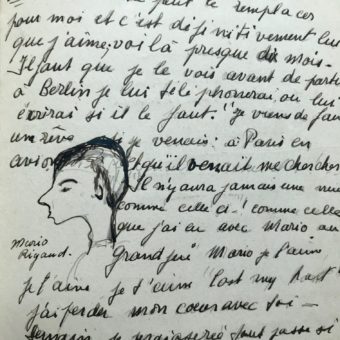 peut le remplacer
pour moi et c'est définitivement lui
que j'aime, voilà presque dix mois.
Il faut que je le vois avant de partir
à Berlin je lui téléphonerai ou lui
écrirai si il le faut. "Je viens de faire
un rêve je venais à Paris en
avion et qu'il venait me chercher
Il n'y aura jamais une nuit
comme celle-ci. comme celle
que j'ai eu avec Mario au
Mario
Rigaud.
Grand Mario je t'aime
je t'aime je t'aime "lost my heart"
j'ai perdu mon coeur avec toi -
demain je tout passe si